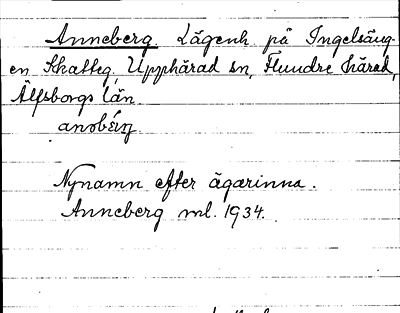 Anneberg. Lägenh på Ingelsäng-
en Skatteg, Upphärad sn, Flundre härad,
Älfsborgs län.
Nynamn efter ägarinna.
Anneberg ml. 1934.